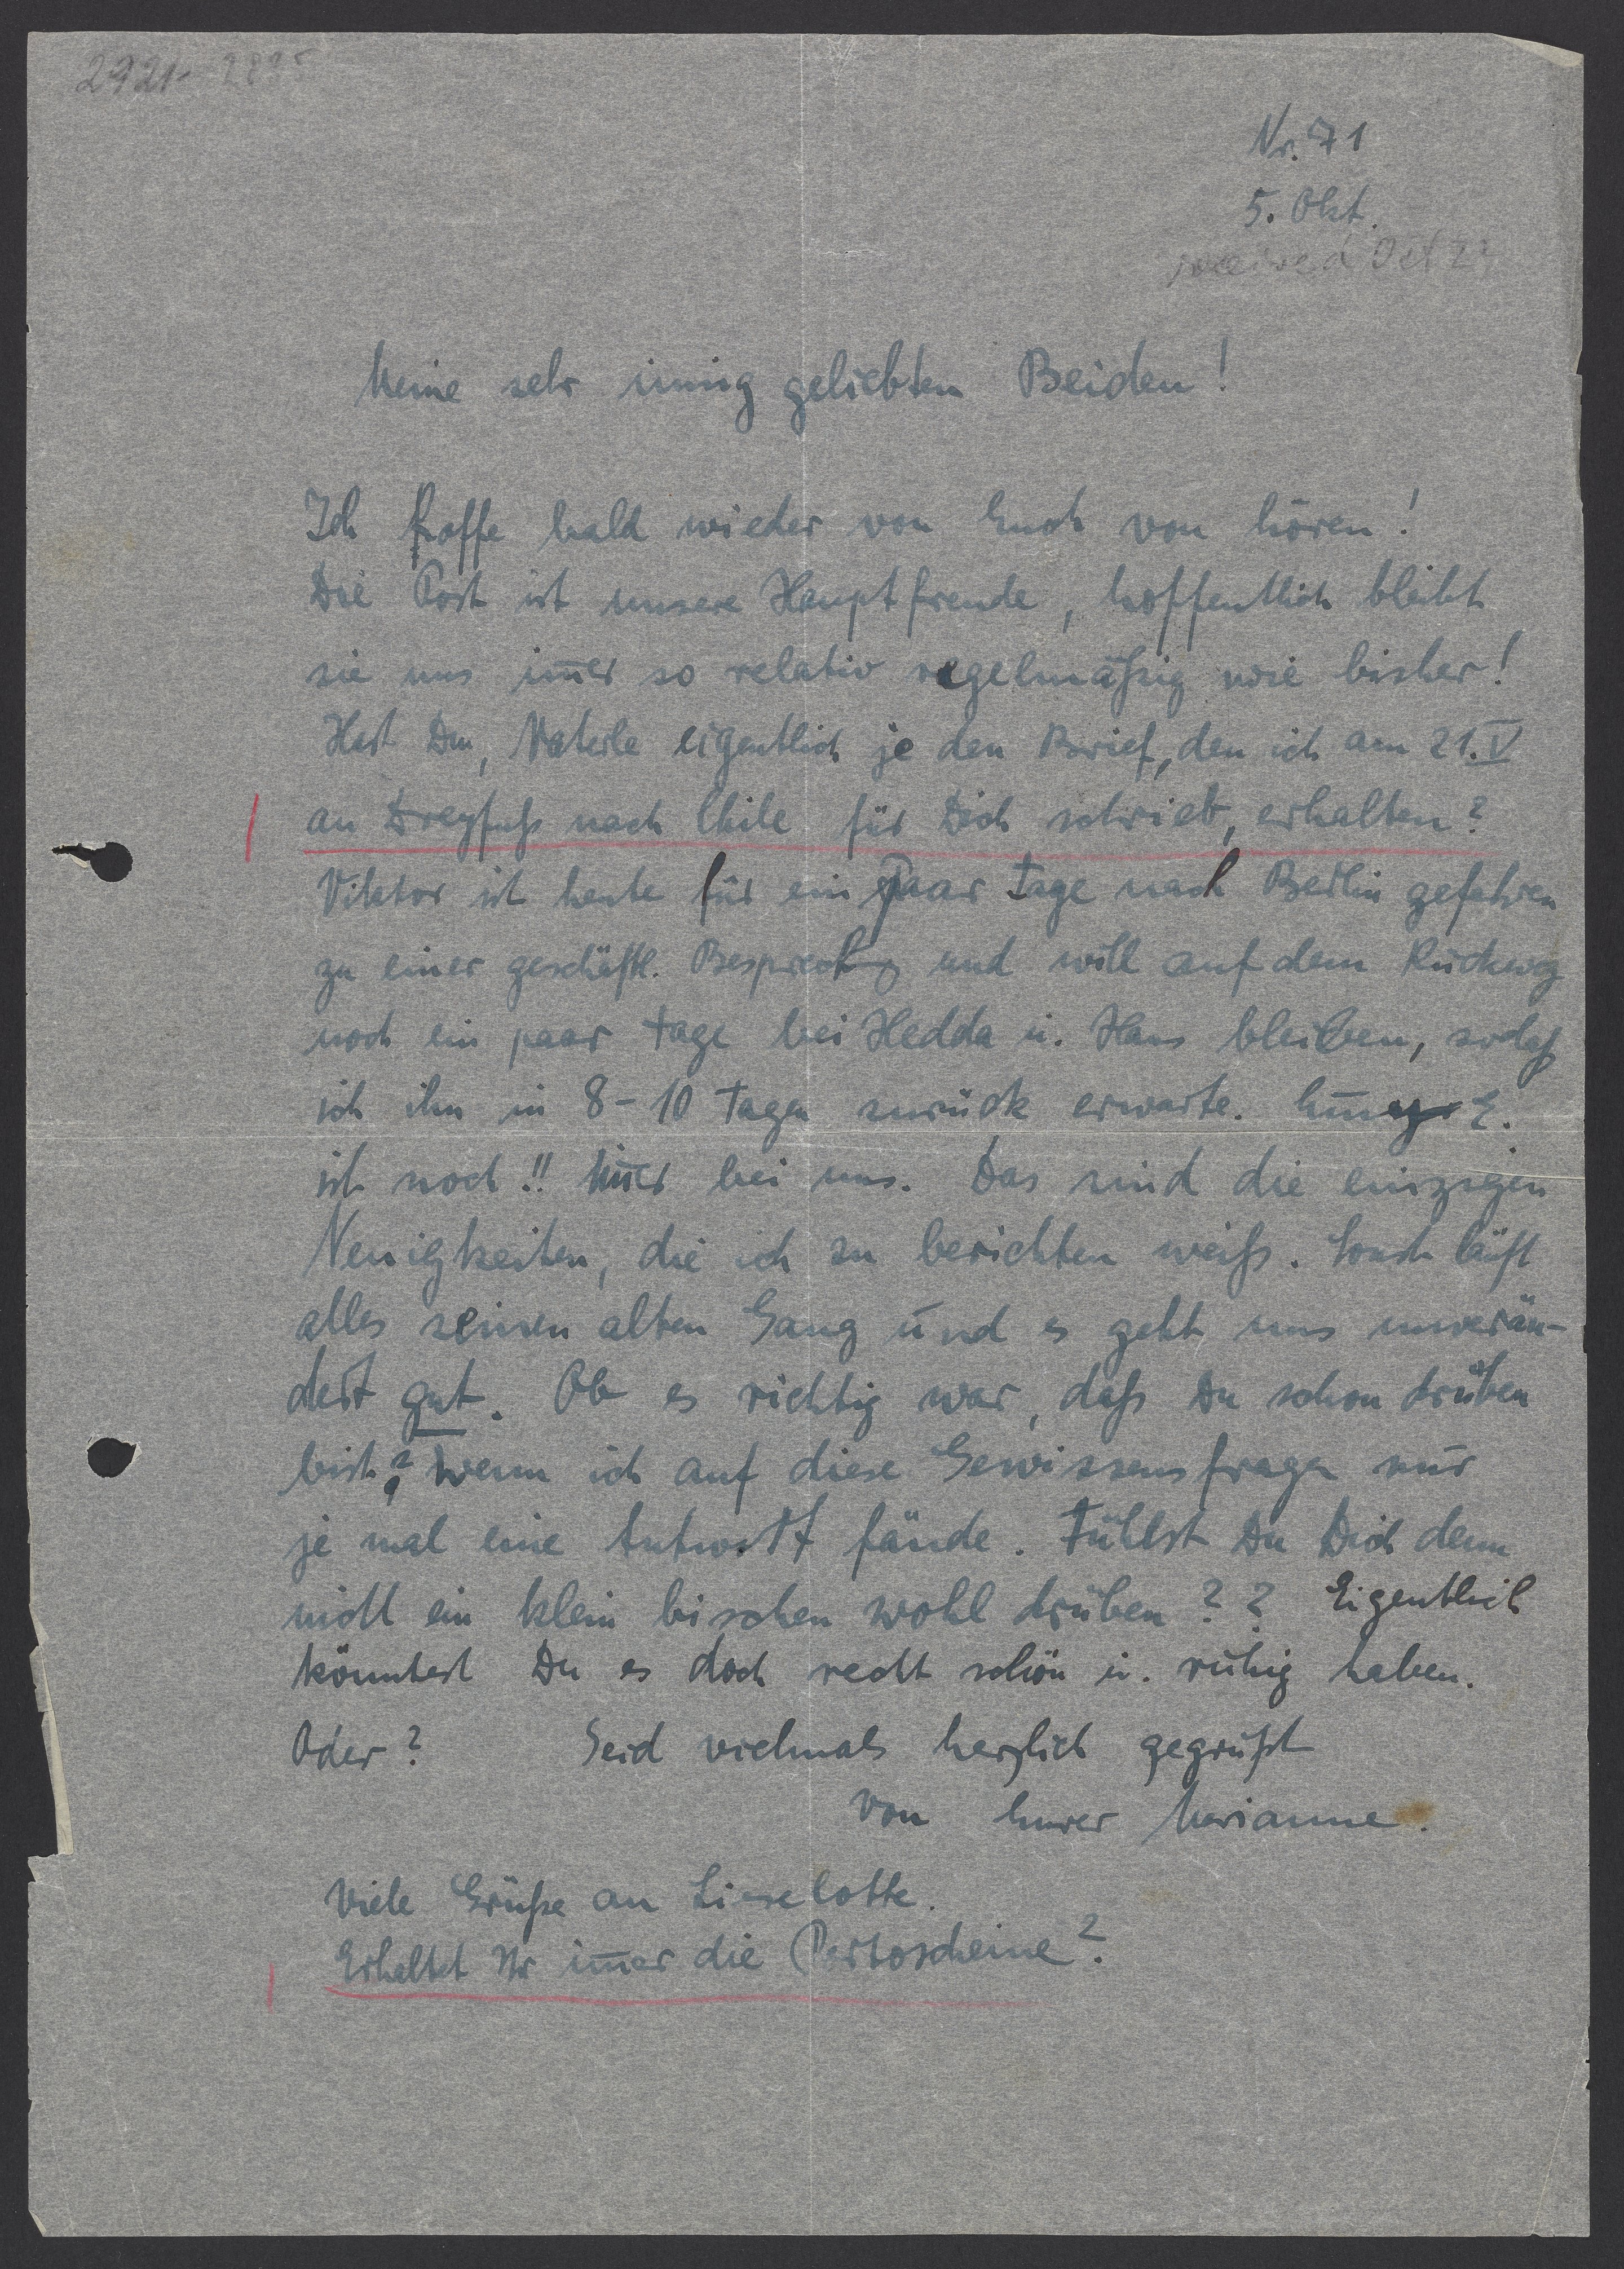 2921- 2935
Nr. 71
5. Okt.
received Oct 2
Meine sehr innig geliebten Beiden!
Ich hoffe bald wieder von Euch von hören!
Die Post ist unsere Hauptfreude, hoffentlich bleibt
sie uns im̄er so relativ regelmäßig wie bisher!
Hast Du, Vaterle eigentlich je den Brief, den ich am 21. V
an Dreyfuß nach Chile für Dich schrieb, erhalten?
Viktor ist heute für ein paar Tage nach Berlin gefahren
zu einer geschäftl. Besprechg und will auf dem Rückweg
noch ein paar Tage bei Hedda u. Hans bleiben, sodaß
ich ihn in 8-10 Tagen zurück erwarte. E.
ist noch!! im̄er bei uns. Das sind die einzigen
Neuigkeiten, die ich zu berichten weiß. Sonst läuft
alles seinen alten Gang und es geht uns unverän-
dert gut. Ob es richtig war, daß Du schon drüben
bist? Wenn ich auf diese Gewissensfragen nur
je mal eine Antwort fände. Fühlst Du Dich denn
nicht ein klein bischen wohl drüben?? Eigentlich
könntest Du es doch recht schön u. ruhig haben.
Oder? Seid vielmals herzlich gegrüßt
von Eurer Marianne.
Viele Grüße an Lieselotte.
Erhaltet Ihr im̄er die Portoscheine?